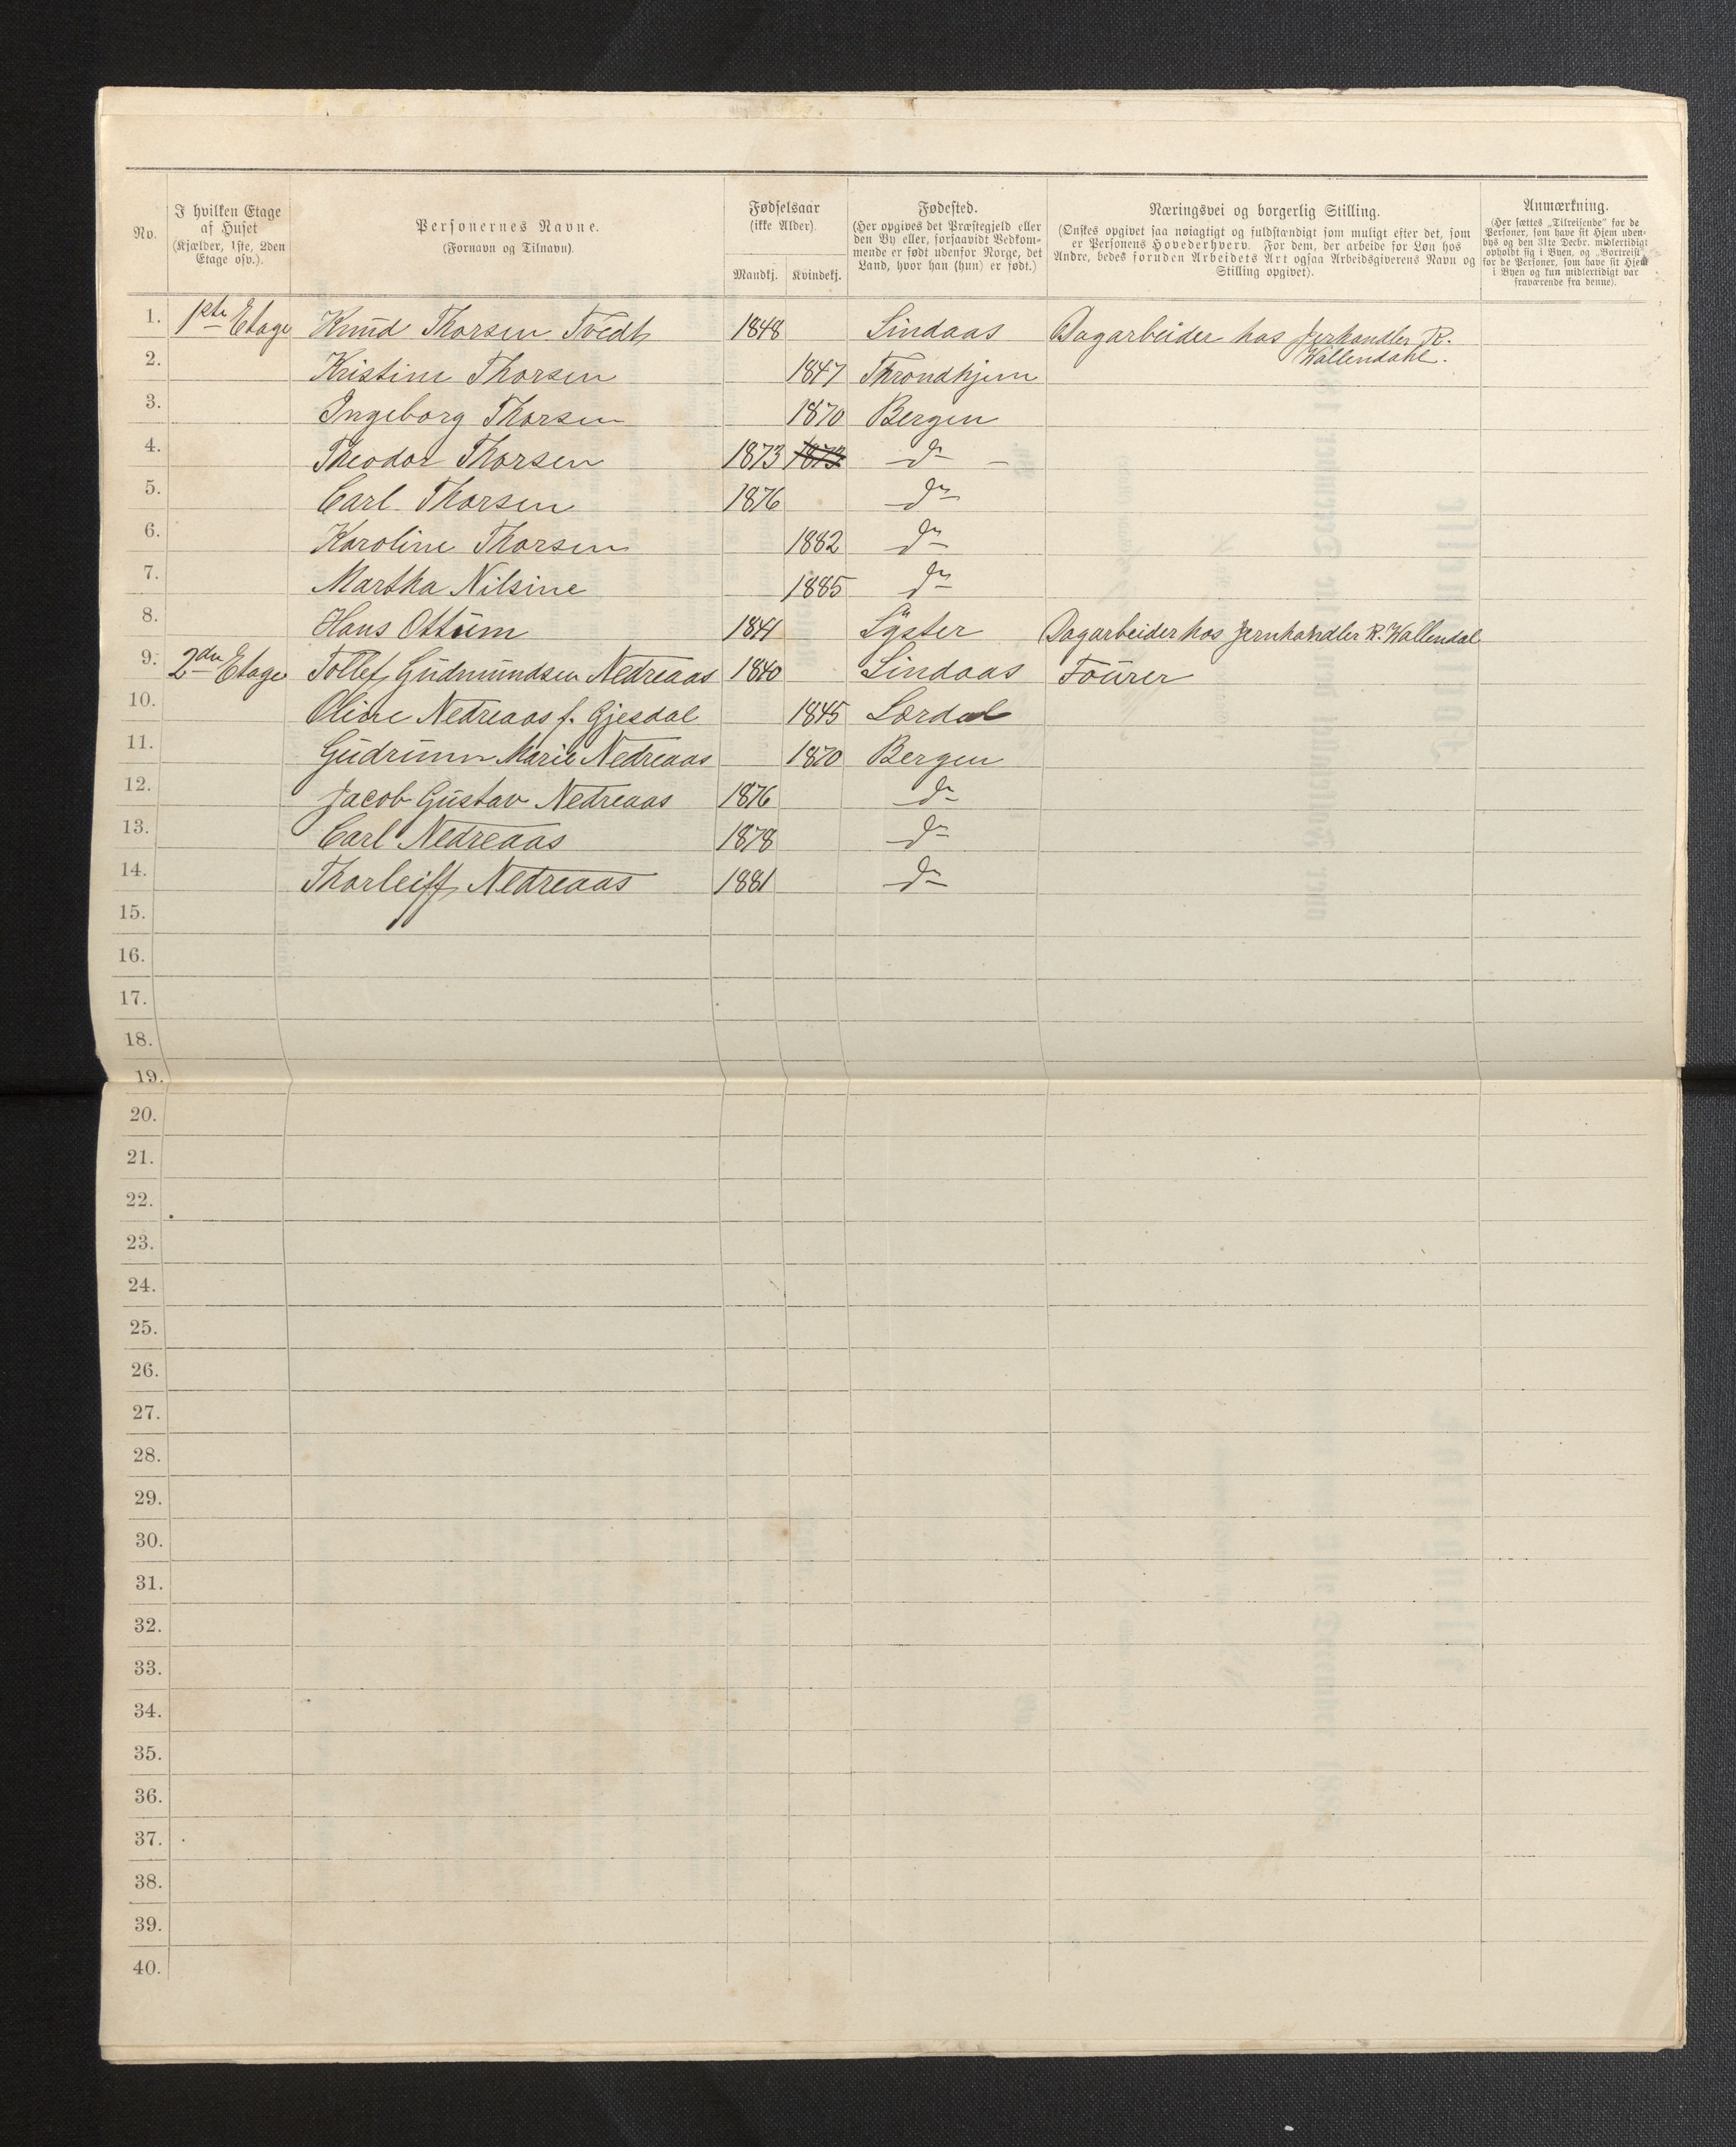 No.
I hvilken Etage
af Huset
(Kjælder, 1ste, 2den
Etage osv.).
Personernes Navne.
(Fornavn og Tilnavn).
Fødselsaar
(ikke Alder).
Mandkj. Kvindekj.
Fødested.
(Her opgives det Præstegjeld eller
den By eller, forsaavidt Vedkom-
mende er født udenfor Norge, det
Land, hvor han (hun) er født.)
Næringsvei og borgerlig Stilling.
(Ønskes opgivet saa nøiagtigt og fuldstændigt som muligt efter det, som
er Personens Hovederhverv. For dem, der arbeide for Løn hos
Andre, bedes foruden Arbeidets Art ogsaa Arbeidsgiverens Navn og
Stilling opgivet).
Anmærkning.
(Her sættes „Tilreisende" for de
Personer, som have sit Hjem uden-
bys og den 31te Decbr. midlertidigt
opholdt sig i Byen, og „Bortreist"
for de Personer, som have sit Hjem
i Byen og kun midlertidigt var
fraværende fra denne).
1. 1ste Etage Knud Thorsen Tvedt 1848 Lindaas Dagarbeider hos Jerhandler R.
Wallendahl.
2. Kristine Thorsen 1847 Throndhjem
3. Ingeborg Thorsen 1870 Bergen
4. Theodor Thorsen 1873 1873 do
5. Carl Thorsen 1876 do
6. Karoline Thorsen 1882 do
7. Martha Nilsine 1885 do
8. Hans Ottum 1841 Lyster Dagarbeider hos Jernhandler R. Wallendal
9. 2den Etage Tollef Gudmundsen Nedreaas 1840 Lindaas Fourer
10. Oline Nedreaas f. Gjesdal 1845 Lærdal
11. Gudrunn Marie Nedreaas 1870 Bergen
12. Jacob Gustav Nedreaas 1876 do
13. Carl Nedreaas 1878 do
14. Thorleiff Nedreaas 1881 do
15.
16.
17.
18.
19.
20.
21.
22.
23.
24.
25.
26.
27.
28.
29.
30.
31.
32.
33.
34.
35.
36.
37.
38.
39.
40.